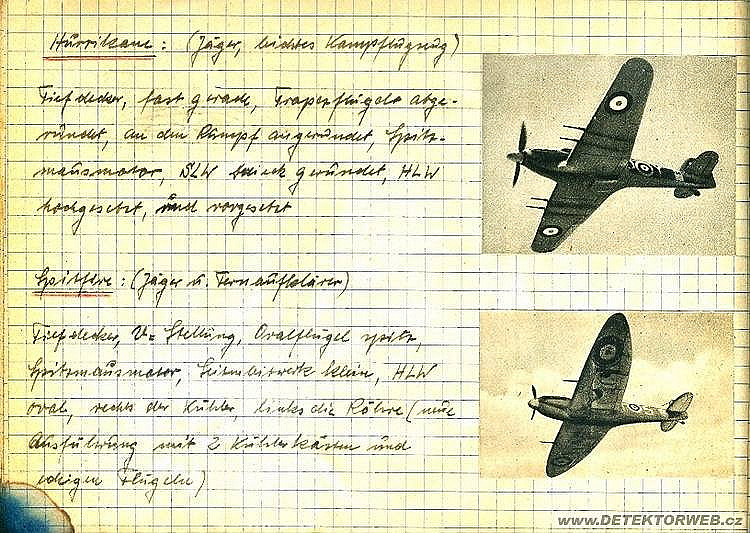 Hurrikane: (Jäger, leichtes Kampfflugzeug)
Tiefdecker, fast gerade, Trapezflügel abge-
rundet, an den Rumpf angerundet, Spitz-
mausmotor, SLW gerundet, HLW
hochgesetzt, und vorgesetzt
Spitfire: (Jäger u. Fernaufklärer)
Tiefdecker, V-Stellung, Ovalflügel spitz,
Spitzmausmotor, Seitenleitwerk klein, HLW
oval, rechts der Kühler, links die Röhre (neue
Ausführung mit 2 Kühlerkästen und
eckigen Flügeln)
www.DETEKTORWEB.cz